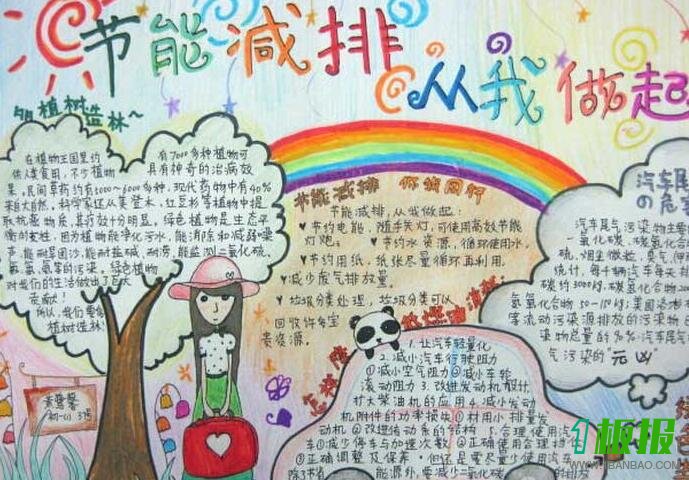 节能减排
从我做起
多植树造林~
在植物王国里约
有7000多种植物可
供人类食用，不少植物
具有神奇的治病效
果，民间草药约有5000～6000多种，现代药物中有40%
来自大自然，科学家还从美登木，红豆杉等植物中提
取抗癌物质，其疗效十分明显，绿色植物是生态平
衡的支柱，因为植物能净化污水，能消除和减弱噪
声，能耐旱固沙，能耐盐碱、耐涝，能监测二氧化硫、
氟、氯、氨等的污染。绿色植物
对我们的生活做出了巨大
贡献！
所以，我们要多
植树造林！
节能减排 你我同行
节能减排，从我做起：
♥节约电能，随手关灯，可使用高效节能
灯泡。 ♥节约水资源，循环使用水。
♥节约用纸，纸张尽量循环再利用。
♥减少废气排放量。
♥垃圾分类处理，垃圾分类可以
回收许多宝
贵资源。
汽车尾
的危害
汽车尾气污染物主要
一氧化碳、碳氢化合
硫、烟尘微粒、臭气(甲
统计，每千辆汽车每天排
碳约3000kg，碳氢化合物200
氮氧化合物50—150kg；美国洛杉
等流动污染源排放的污染物已
染物总量的%%汽车尾气
气污染的“元凶”
1. 让汽车轻量化
2. 减小汽车行驶阻力
①减小空气阻力②减小车轮
滚动阻力 3. 改进发动机设计，
扩大柴油机的应用 4. 减小发动
机附件的功率损失 ①材用小排量发
动机 ②改进传动系的结构 5. 合理使用汽
车①减少停车与加速次数 ②正确使用合理挡位
③正确调整及保养·但还是要尽量少使用汽车
除了节省 能源外，要减少二氧化碳
初一(11) 3号
板报
WWW.1BANBAO.COM